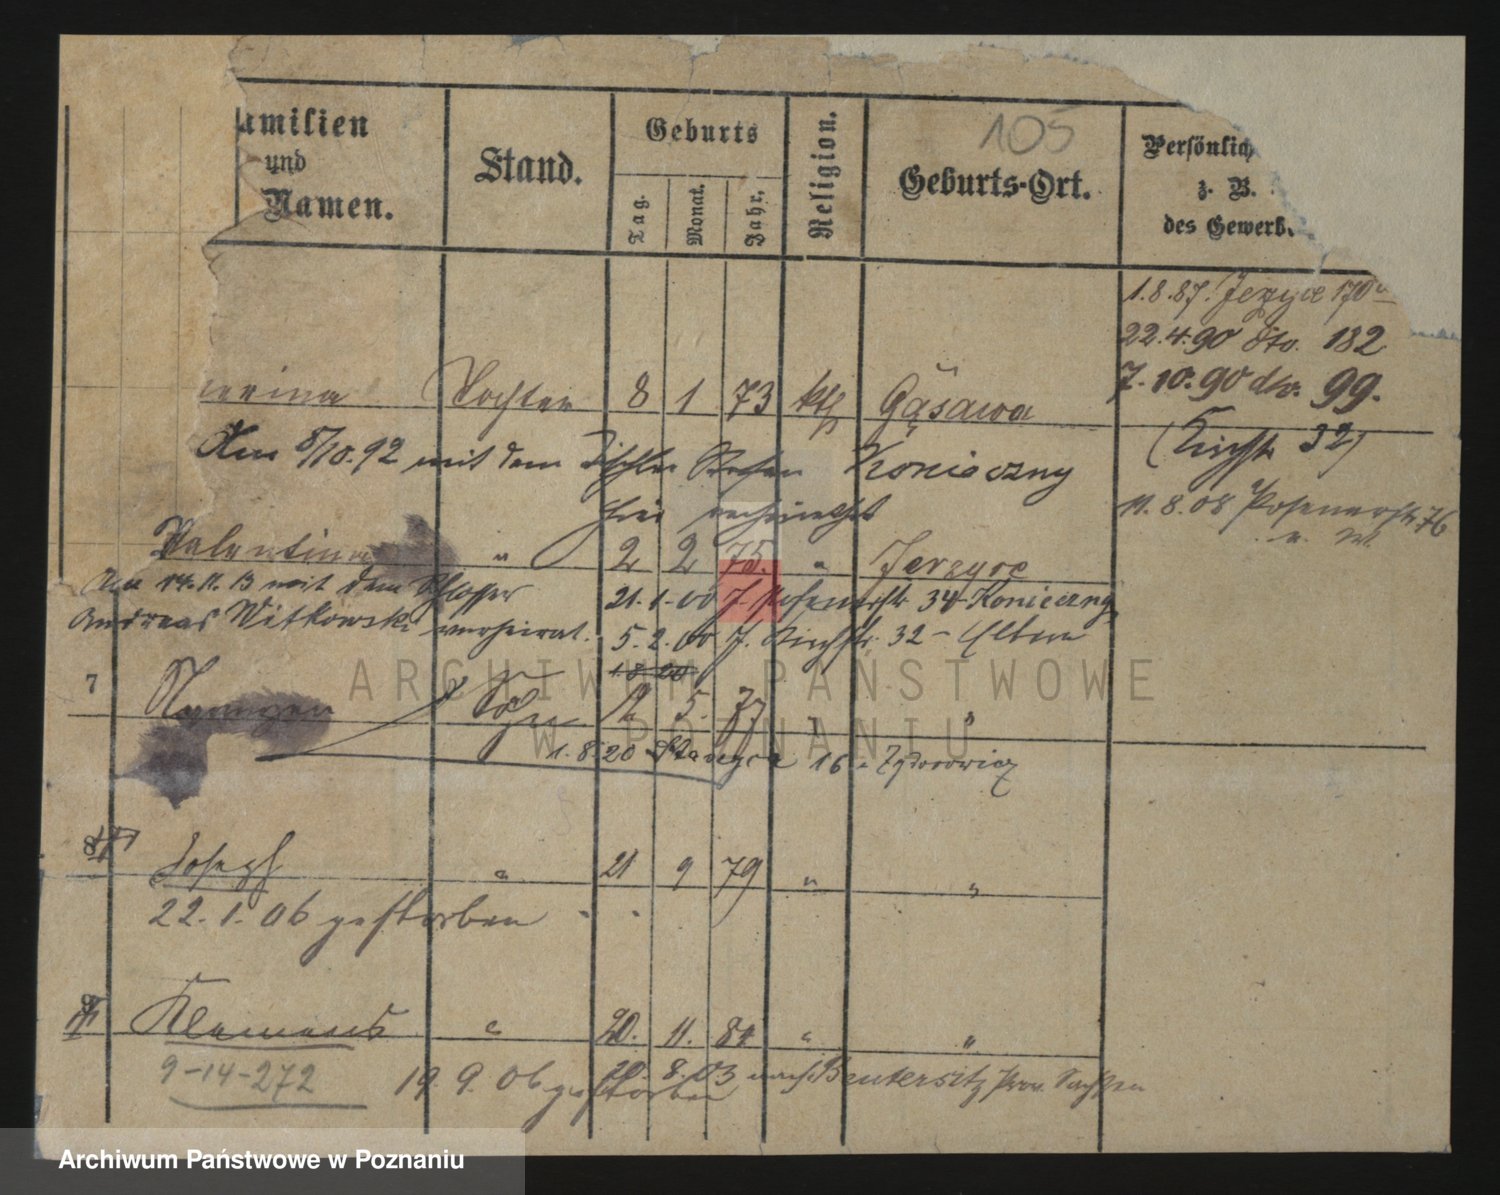 105
amilien
und
Namen.
Stand.
Geburts
Tag.
Monat.
Jahr.
Religion.
Geburts-Ort.
Persönlich
z. B.
des Gewerb.
1.8.87. Jezyce 170
22.4.90 dto. 182
7.10.90 dto. 99.
erina Tochter 8 1 73 kth Gąsawa
(Kirchstr 32)
Am 8/10.92 mit dem Tischler Stefan Konieczny
hier verheirathet
11.8.08 Posenerstr 76
Valentina " 2 2 75. " Jerzyce
Am 14.11.13 mit dem Schlosser
21.1.00 J. Posenerstr 34 Konieczny
Andreas Witkowski verheirat.
5.2.00 J. Kirchstr. 32 - Eltern
7 Sohn 12 5. 77 " "
1.8.20 16
8 Joseph " 21 9 79 " "
22.1.06 gestorben
Klemens " 20. 11. 84 " "
9-14-272
20.8.03 nach Beutersitz Prov. Sachsen
19.9.06 gestorben
ARCHIWUM PAŃSTWOWE
W POZNANIU
Archiwum Państwowe w Poznaniu